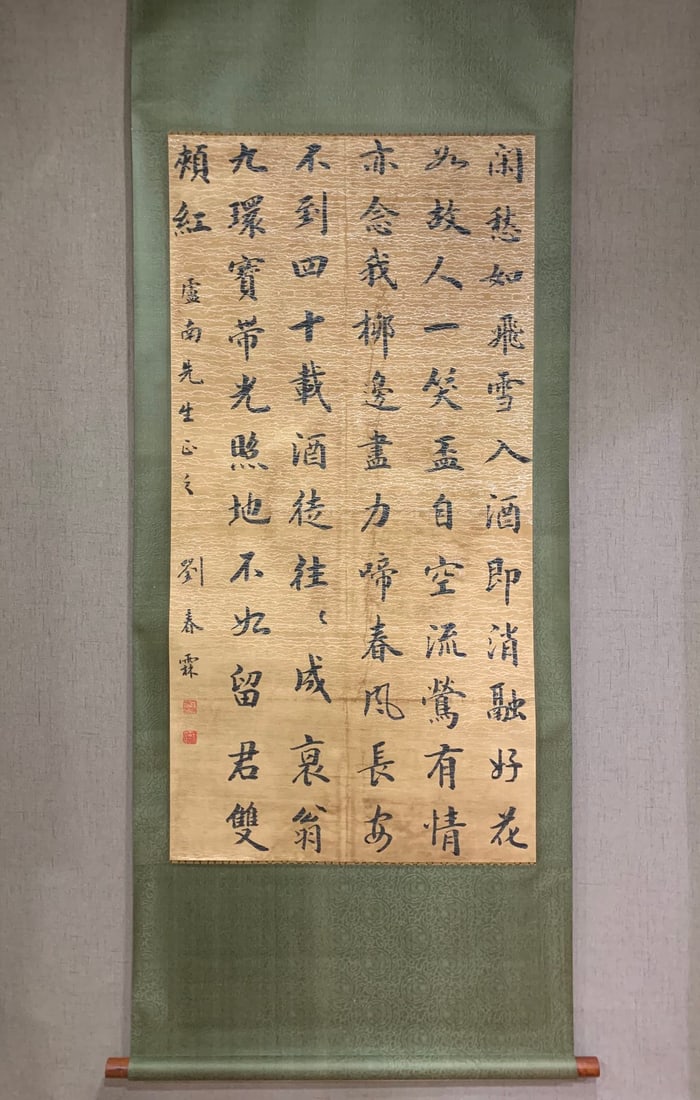 閑愁如飛雪入酒即消融好花
如故人一笑盃自空流鶯有情
亦念我柳邊盡力啼春風長安
不到四十載酒徒往〻成衰翁
九環寶帶光照地不如留君雙
頰紅 盧南先生正之 劉春霖